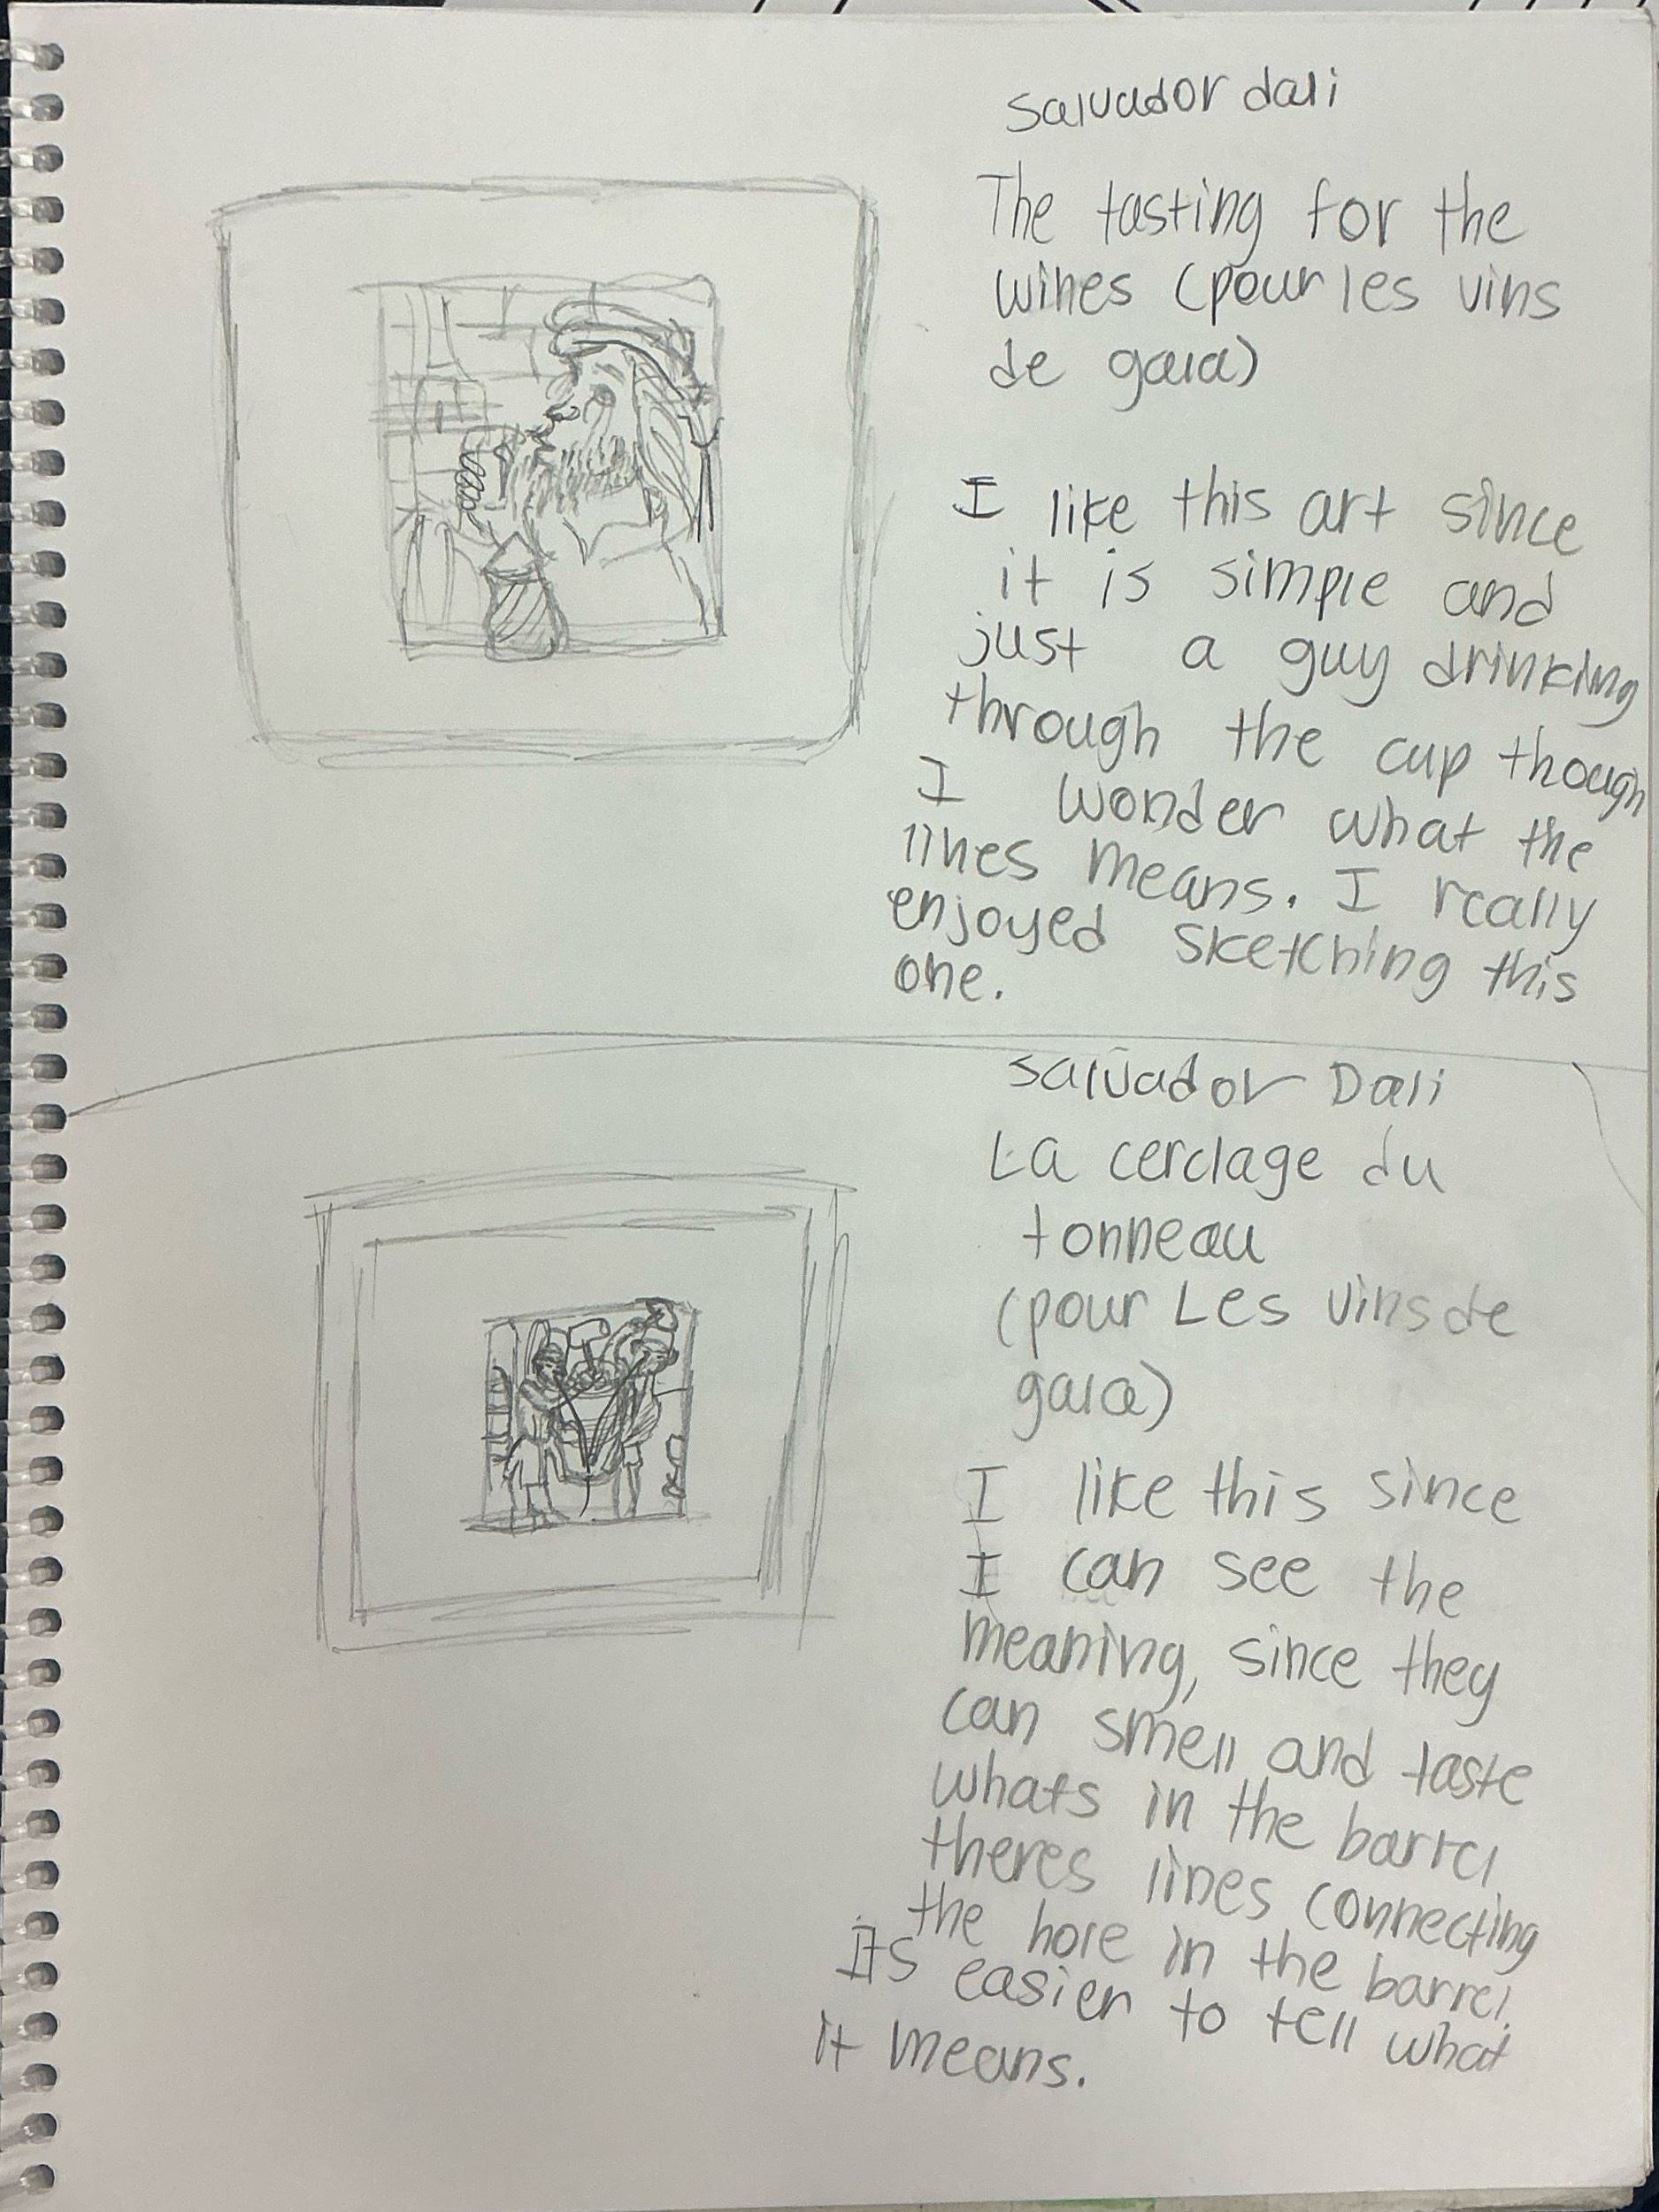 Salvador dali
The tasting for the
wines (pour les vins
de gala)
I like this art since
it is simple and
just a guy drinking
through the cup though
I wonder what the
lines means. I really
enjoyed sketching this
one.
Salvador Dali
La cerclage du
tonneau
(pour Les vins de
gala)
I like this since
I can see the
meaning, since they
can smell and taste
whats in the barrel
theres lines connecting
the hole in the barrel.
Its easier to tell what
it means.